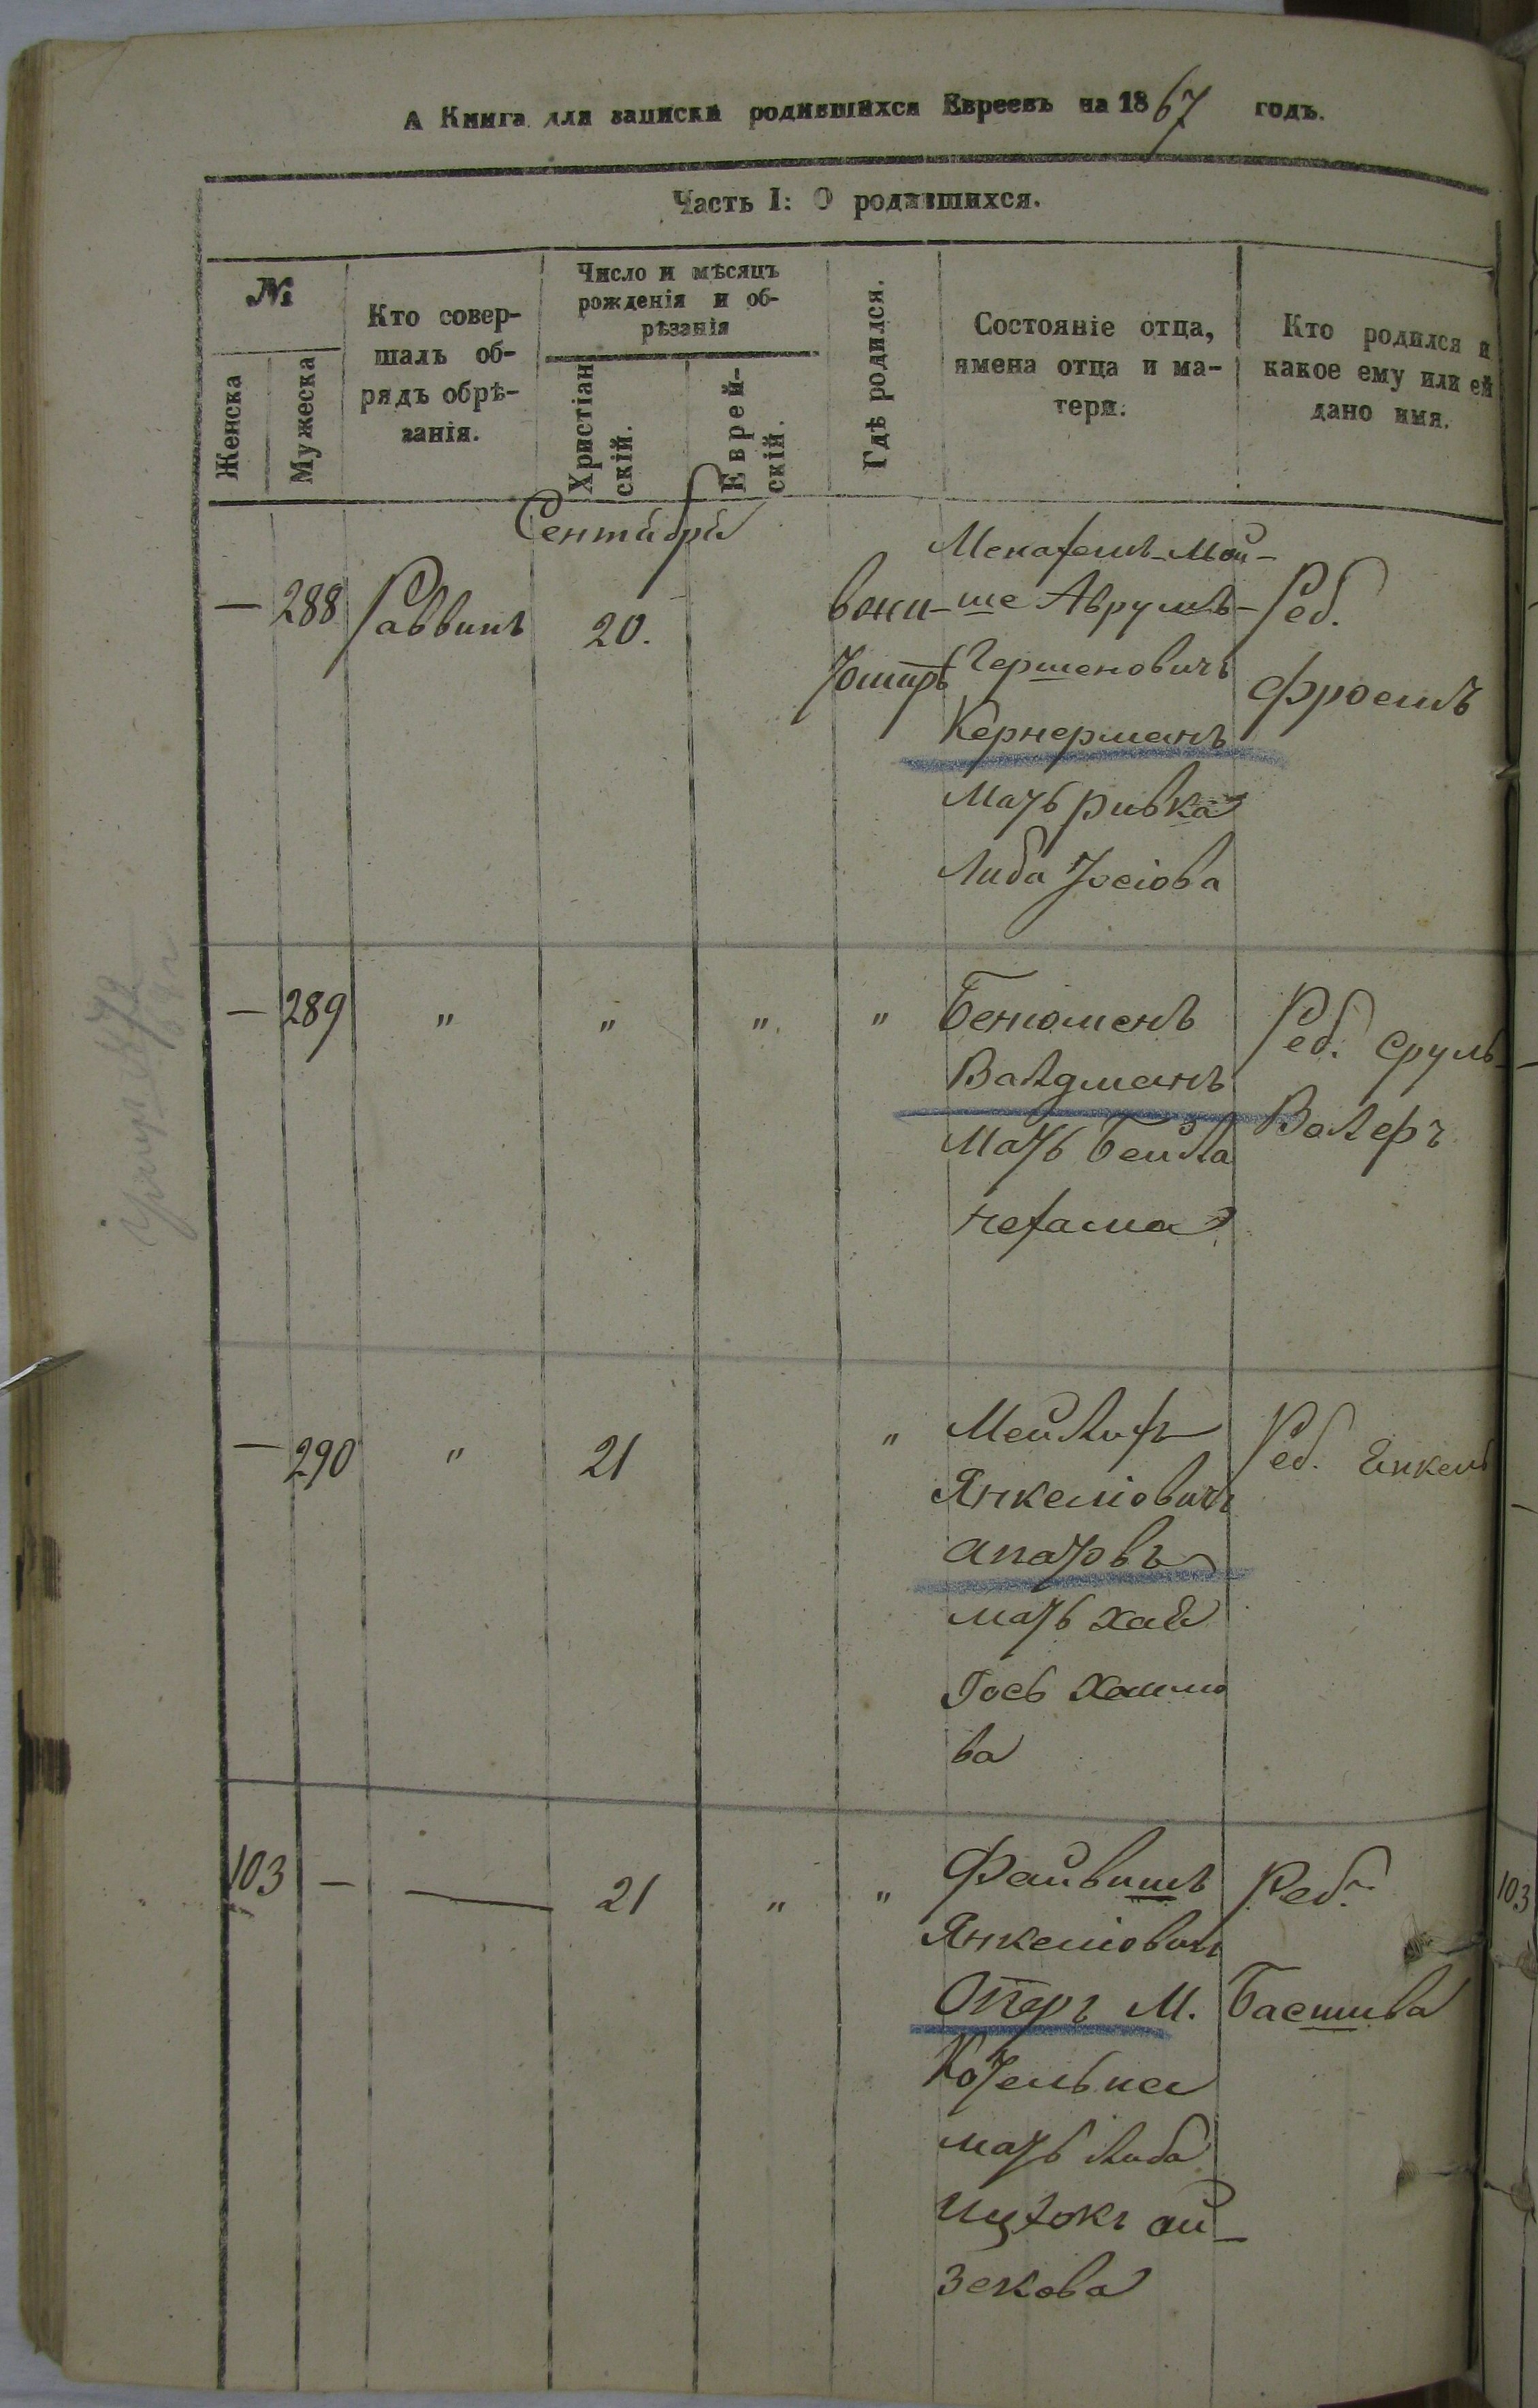 А Книга для записки родившихся Евреевъ на 1867 годъ.
Часть I: О родившихся.
№
Женска
Мужеска
Кто совер-
шалъ об-
рядъ обрѣ-
занія.
Число и мѣсяцъ
рожденія и об-
рѣзанія
Христіан
скій.
Еврей-
скій.
Гдѣ родился.
Состояніе отца,
имена отца и ма-
тери.
Кто родился и
какое ему или ей
дано имя.
Сентября
— 288 Раввинъ 20.
Менахемъ-Мой-
ше Аврумъ-
Гершеновичъ
Кернерманъ
Мать Ривка
Либа Іосіова
Реб.
Фроемъ
— 289 " " " "
Бенюменъ
Валдманъ
Мать Бейла
Нехама
Реб. Сруль
Волеръ
— 290 " 21 "
Мейлихъ
Янкеліовичъ
Мать Хая
ва
Реб. Янкель
103 — — 21 " "
Файвишъ
Янкеліовичъ
Оперъ М.
мать Либа
ай-
зекова
Реб.
Басшива
103